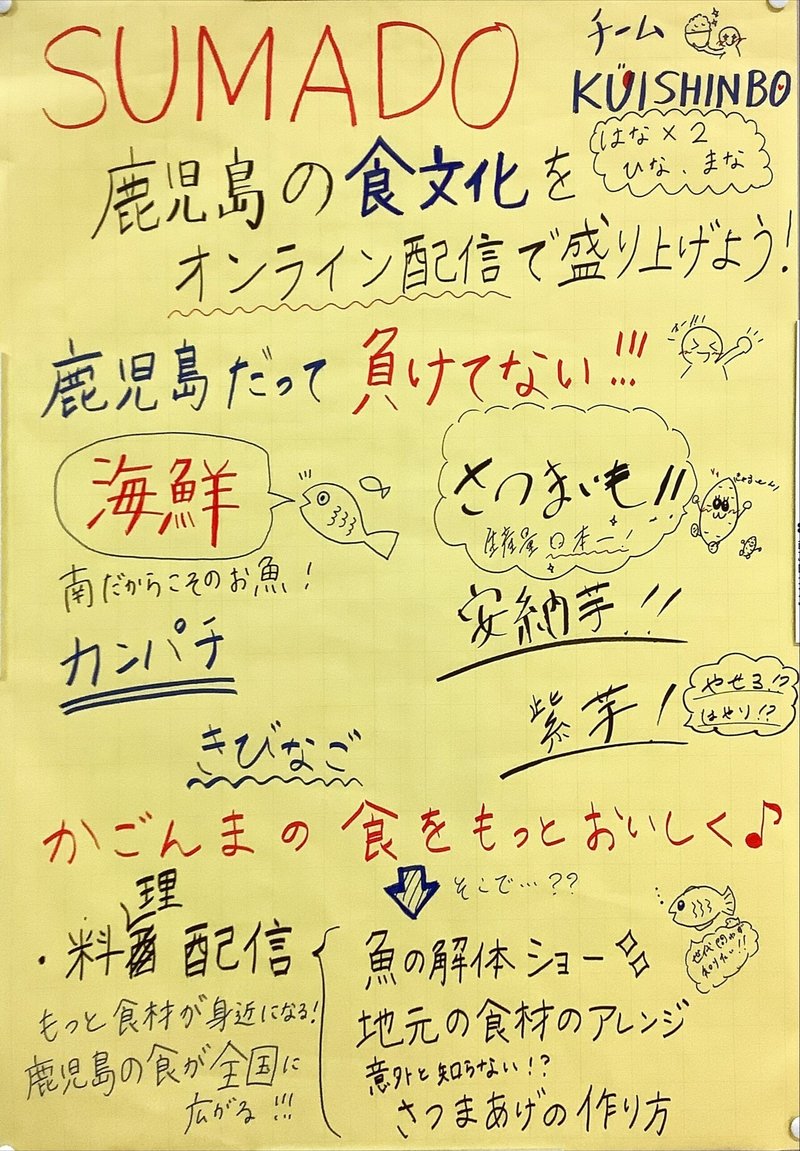 SUMADO
チーム
KUISHINBO
はな×2
ひな、まな
鹿児島の食文化を
オンライン配信で盛り上げよう!
鹿児島だって負けてない!!!
海鮮
南だからこそのお魚!
カンパチ
きびなご
さつまいも!!
生産量日本一!
安納芋!!
紫芋!
やせる!?
はやり!?
かごんまの食をもっとおいしく♪
そこで…??
・料理配信
もっと食材が身近になる!
鹿児島の食が全国に
広がる!!!
魚の解体ショー
世代問わず
知りたい!!
地元の食材のアレンジ
意外と知らない!?
さつまあげの作り方